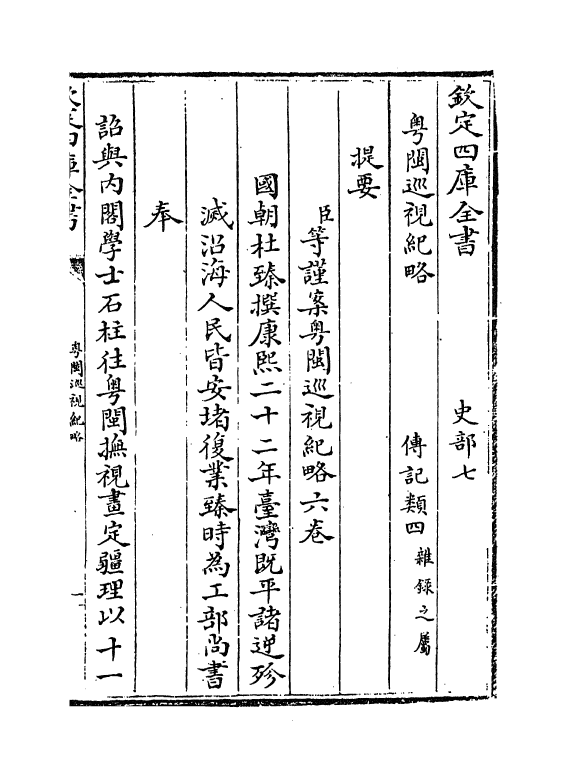 欽定四庫全書　史部七
粤閩巡視紀略　傳記類四雜録之屬
提要
臣等謹案粤閩巡視紀略六卷
國朝杜臻撰康熙二十二年臺灣既平諸逆殄
滅沿海人民皆安堵復業臻時為工部尚書
奉
詔與内閣學士石柱往粤閩撫視畫定疆理以十一
欽定四庫全書
粤閩巡視紀略
一